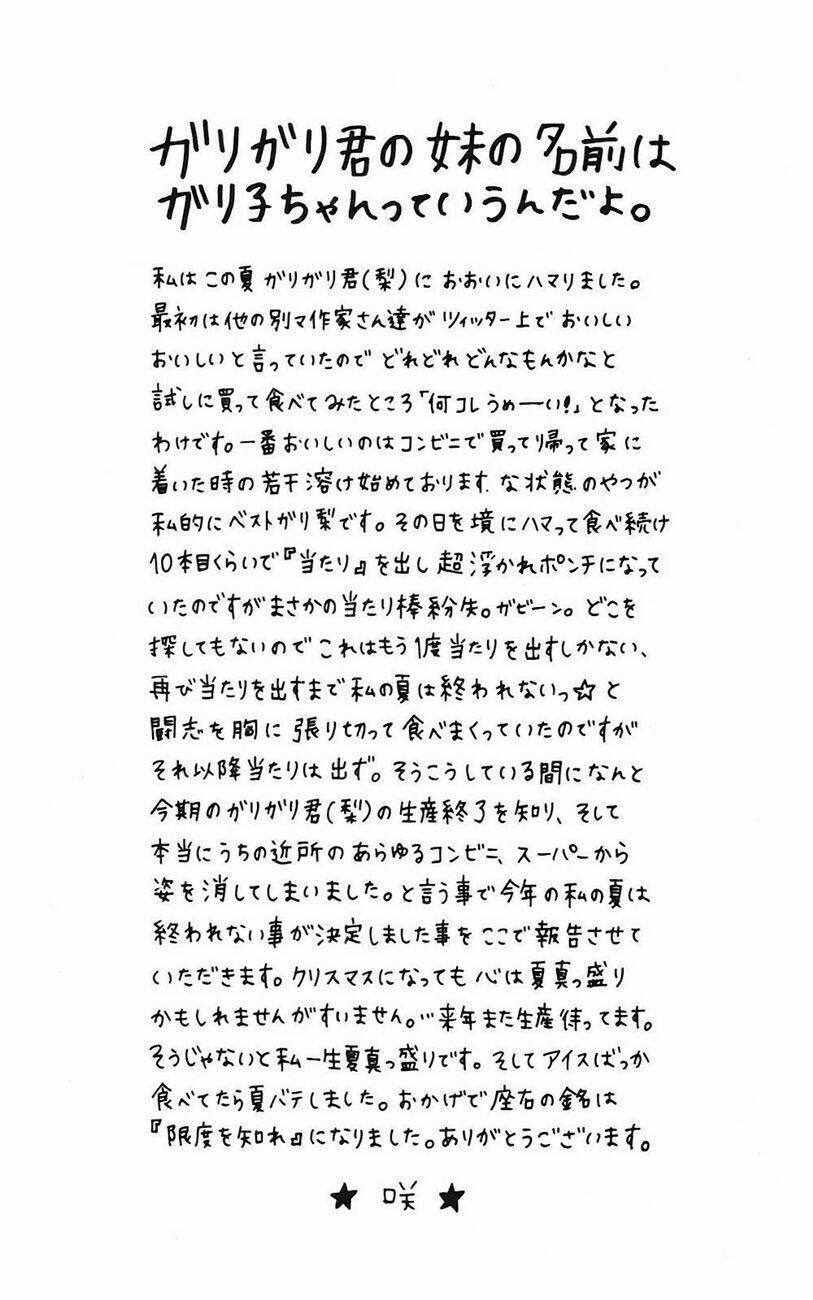 ガリガリ君の妹の名前は
ガリ子ちゃんっていうんだよ。
私はこの夏ガリガリ君(梨)におおいにハマりました。
最初は他の別マ作家さん達がツィッター上でおいしい
おいしいと言っていたのでどれどれどんなもんかなと
試しに買って食べてみたところ「何コレうめーい!」となった
わけです。一番おいしいのはコンビニで買って帰って家に
着いた時の若干溶け始めております.な状態のやつが
私的にベストガリ梨です。その日を境にハマって食べ続け
10本目くらいで『当たり』を出し超浮かれポンチになって
いたのですがまさかの当たり棒紛失。ガビーン。どこを
探してもないのでこれはもう1度当たりを出すしかない、
再び当たりを出すまで私の夏は終われないっ☆と
闘志を胸に張り切って食べまくっていたのですが
それ以降当たりは出ず。そうこうしている間になんと
今期のガリガリ君(梨)の生産終了を知り、そして
本当にうちの近所のあらゆるコンビニ、スーパーから
姿を消してしまいました。と言う事で今年の私の夏は
終われない事が決定しました事をここで報告させて
いただきます。クリスマスになっても心は夏真っ盛り
かもしれませんがすいません。…来年また生産待ってます。
そうじゃないと私一生夏真っ盛りです。そしてアイスばっか
食べてたら夏バテしました。おかげで座右の銘は
『限度を知れ』になりました。ありがとうございます。
★ 咲 ★